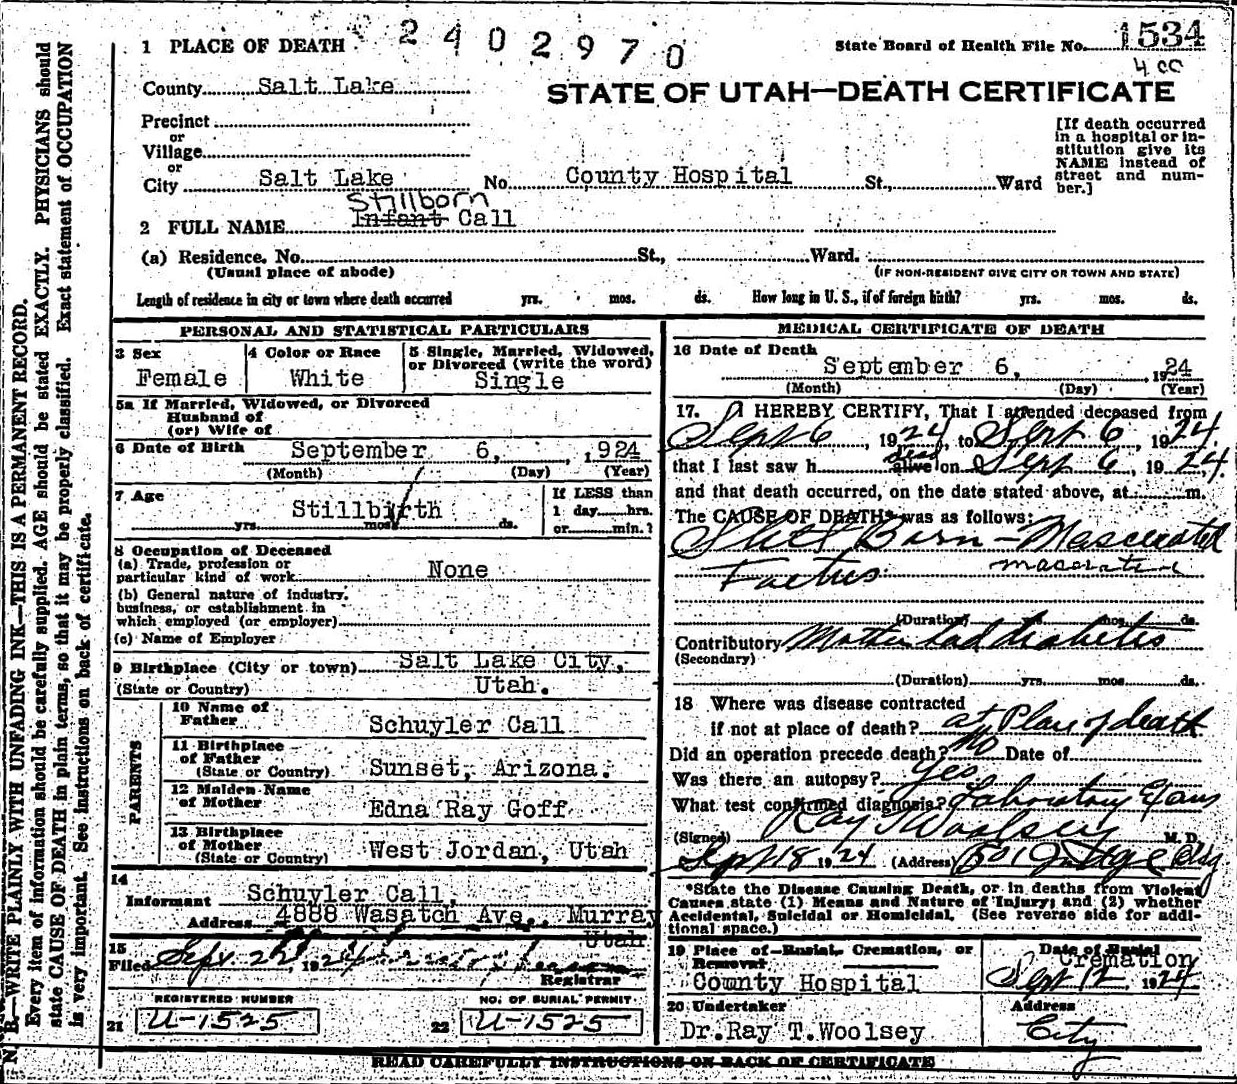 2402970
1 PLACE OF DEATH
State Board of Health File No. 1534
4 00
County Salt Lake
STATE OF UTAH—DEATH CERTIFICATE
Precinct
or
Village
or
City Salt Lake No. County Hospital St., Ward
[If death occurred
in a hospital or in-
stitution give its
NAME instead of
street and num-
ber.]
Stillborn
2 FULL NAME Infant Call
(a) Residence. No. St., Ward.
(Usual place of abode)
(IF NON-RESIDENT GIVE CITY OR TOWN AND STATE)
Length of residence in city or town where death occurred yrs. mos. ds. How long in U. S., if of foreign birth? yrs. mos. ds.
PERSONAL AND STATISTICAL PARTICULARS
3 Sex
Female
4 Color or Race
White
5 Single, Married, Widowed,
or Divorced (write the word)
Single
5a If Married, Widowed, or Divorced
Husband of
(or) Wife of
6 Date of Birth September 6, , 1924
(Month) (Day) (Year)
7 Age
Stillbirth
yrs. mos. ds.
If LESS than
1 day hrs.
or min.?
8 Occupation of Deceased
(a) Trade, profession or
particular kind of work None
(b) General nature of industry,
business, or establishment in
which employed (or employer)
(c) Name of Employer
9 Birthplace (City or town) Salt Lake City,
(State or Country) Utah.
PARENTS
10 Name of
Father Schuyler Call
11 Birthplace
of Father
(State or Country) Sunset, Arizona.
12 Maiden Name
of Mother Edna Ray Goff
13 Birthplace
of Mother
(State or Country) West Jordan, Utah
14
Informant Schuyler Call,
Address 4888 Wasatch Ave., Murray
Utah
15
Filed Sept. 22, 1924
Registrar
REGISTERED NUMBER
21 U-1525
NO. OF BURIAL PERMIT
22 U-1525
MEDICAL CERTIFICATE OF DEATH
16 Date of Death
September 6, 1924
(Month) (Day) (Year)
17. I HEREBY CERTIFY, That I attended deceased from
Sept 6, 1924, to Sept 6, 1924.
that I last saw h dead alive on Sept 6, 1924.
and that death occurred, on the date stated above, at m.
The CAUSE OF DEATH* was as follows:
Still Born — Mascerated
Foetus.
(Duration) yrs. mos. ds.
Contributory Mother had diabetes
(Secondary)
(Duration) yrs. mos. ds.
18 Where was disease contracted
if not at place of death? at Place of death
Did an operation precede death? No Date of
Was there an autopsy? Yes
What test confirmed diagnosis? Laboratory Exam
(Signed) Ray T Woolsey M. D.
Sept 18 1924 (Address) 501 Judge Bldg
*State the Disease Causing Death, or in deaths from Violent
Causes state (1) Means and Nature of Injury; and (2) whether
Accidental, Suicidal or Homicidal. (See reverse side for addi-
tional space.)
19 Place of Burial, Cremation, or
Removal
County Hospital
Date of Burial
Cremation
Sept 12, 1924
20 Undertaker
Dr.Ray T.Woolsey
Address
City
READ CAREFULLY INSTRUCTIONS ON BACK OF CERTIFICATE
N. B.—WRITE PLAINLY WITH UNFADING INK—THIS IS A PERMANENT RECORD.
Every item of information should be carefully supplied. AGE should be stated EXACTLY. PHYSICIANS should
state CAUSE OF DEATH in plain terms, so that it may be properly classified. Exact statement of OCCUPATION
is very important. See instructions on back of certificate.